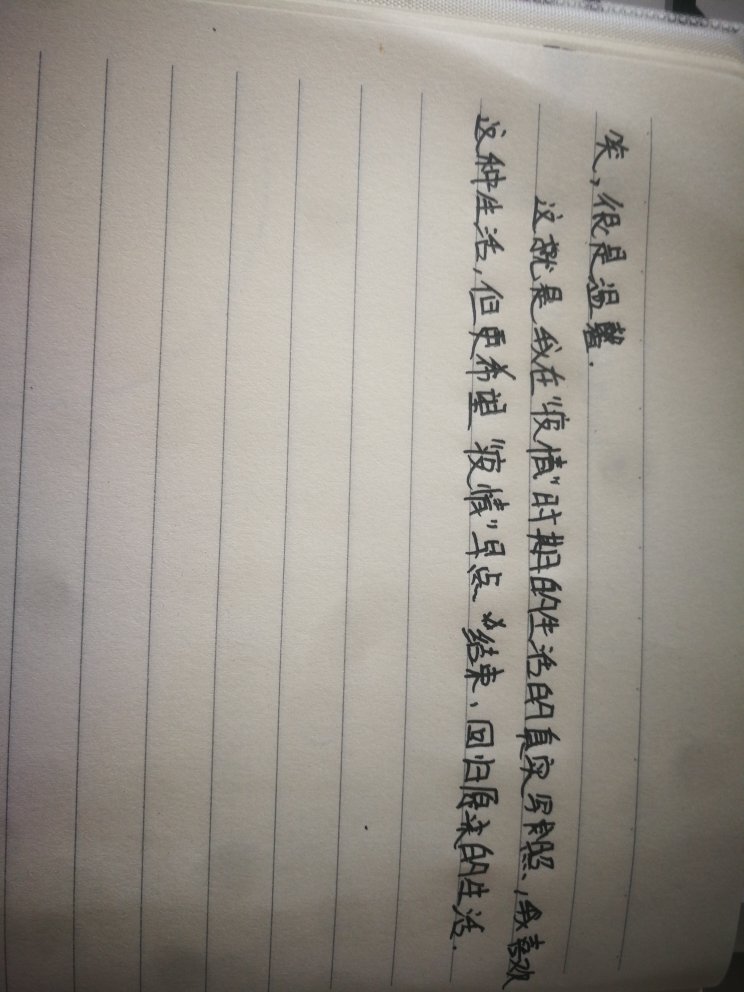 笑，很是温馨.
这就是我在"疫情"时期的生活的真实写照，我喜欢
这种生活，但更希望"疫情"早点结束，回归原来的生活.